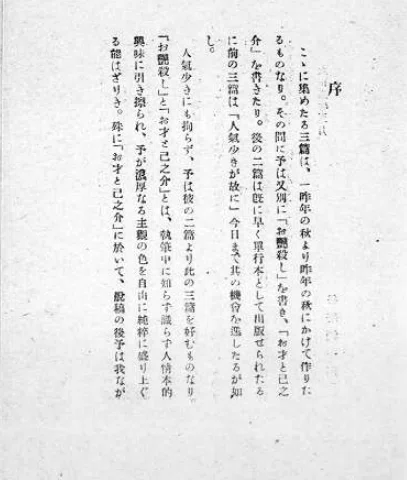 序
こゝに集めたる三篇は、一昨年の秋より昨年の秋にかけて作りた
るものなり。その間に予は又別に「お艶殺し」を書き、「お才と巳之
介」を書きたり。後の二篇は既に早く單行本として出版せられたる
に前の三篇は「人氣少きが故に」今日まで其の機會を逸したるが如
し。
人氣少きにも拘らず、予は後の二篇より此の三篇を好むものなり。
「お艶殺し」と「お才と巳之介」とは、執筆中に知らず識らず人情本的
興味に引き擦られ、予が濃厚なる主觀の色を自由に純粹に盛り上ぐ
る能はざりき。殊に「お才と巳之介」に於いて、脫稿の後予は我なが